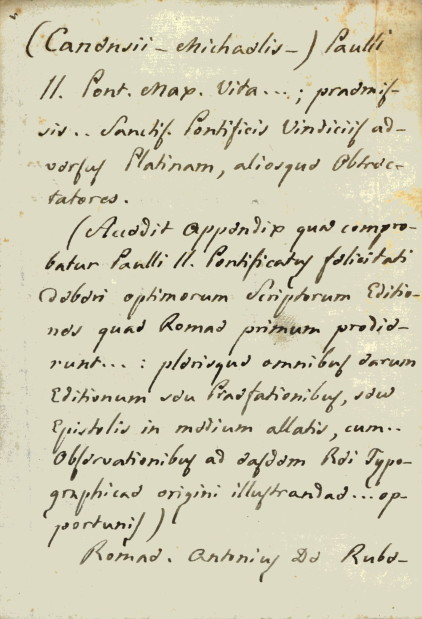 (Canensii - Michaelis -) Paulli
II. Pont. Max. Vita...; præmis-
sis.. Sanctis. Pontificis Vindiciis ad-
versus Platinam, aliosque Obtrec-
tatores.
(Accedit Appendix qua compro-
batur Paulli II. Pontificatus felicitati
deberi optimorum Scriptorum Editio-
nes quae Romae primum prodie-
runt...: plerisque omnibus earum
Editionum seu Praefationibus, seu
Epistolis in medium allatis, cum..
Observationibus ad easdem Rei Typo-
graphicae origini illustrandae... op-
portunis)
Romae. Antonius De Rube-